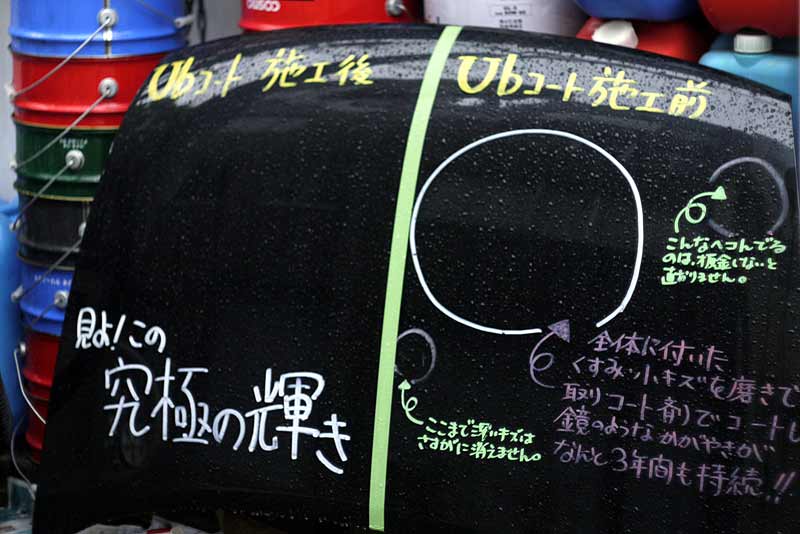 Ubコート 施工後
Ubコート施工前
見よ!この
究極の輝き
こんなヘコんでる
のは、板金しないと
直りません。
ここまで深いキズは
さすがに消えません。
全体に付いた
くすみ・小キズを磨きで
取りコート剤でコートし
鏡のようなかがやきが
なんと3年間も持続!!